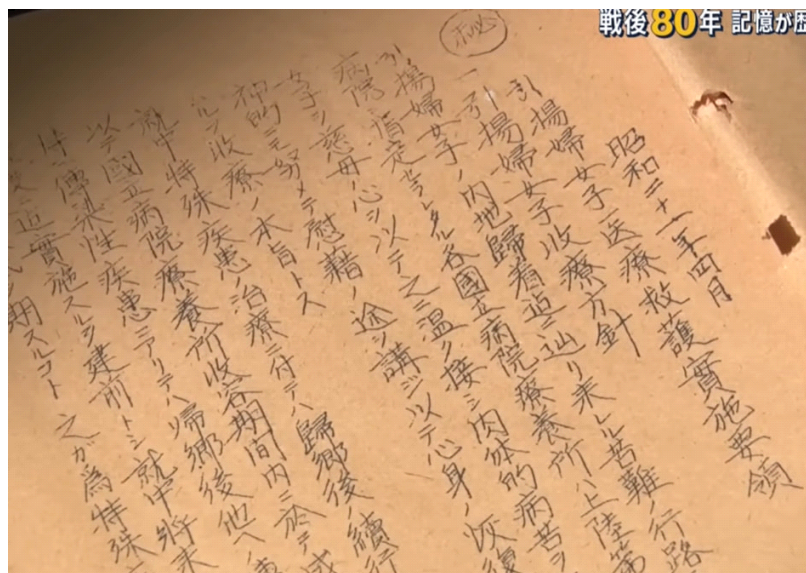 戦後80年 記憶が歴
秘
昭和二十一年四月
引揚婦女子医療救護實施要領
引揚婦女子收療方針
一、引揚婦女子ノ内地歸着迄ニ辿リ来レル苦難ノ行路
引揚婦女子
病院ニ指定セラレタル各國立病院療養所ハ上陸第
女子ヲ慈母ノ心ヲ以テ之ニ温ク接シ肉体的病苦ヲ
神的ニモ努メテ慰藉ノ途ヲ講ジ以テ心身ノ恢復
收療ノ本旨トス
就中特殊疾患ノ治療ニ付テハ歸郷後ノ續行
以テ國立病院療養所收容期間内ニ於テ
特ニ傳染性疾患ニアリテハ帰郷後他ヘノ
迄實施スルヲ建前トシ就中将来
期スルコト之ガ為特殊